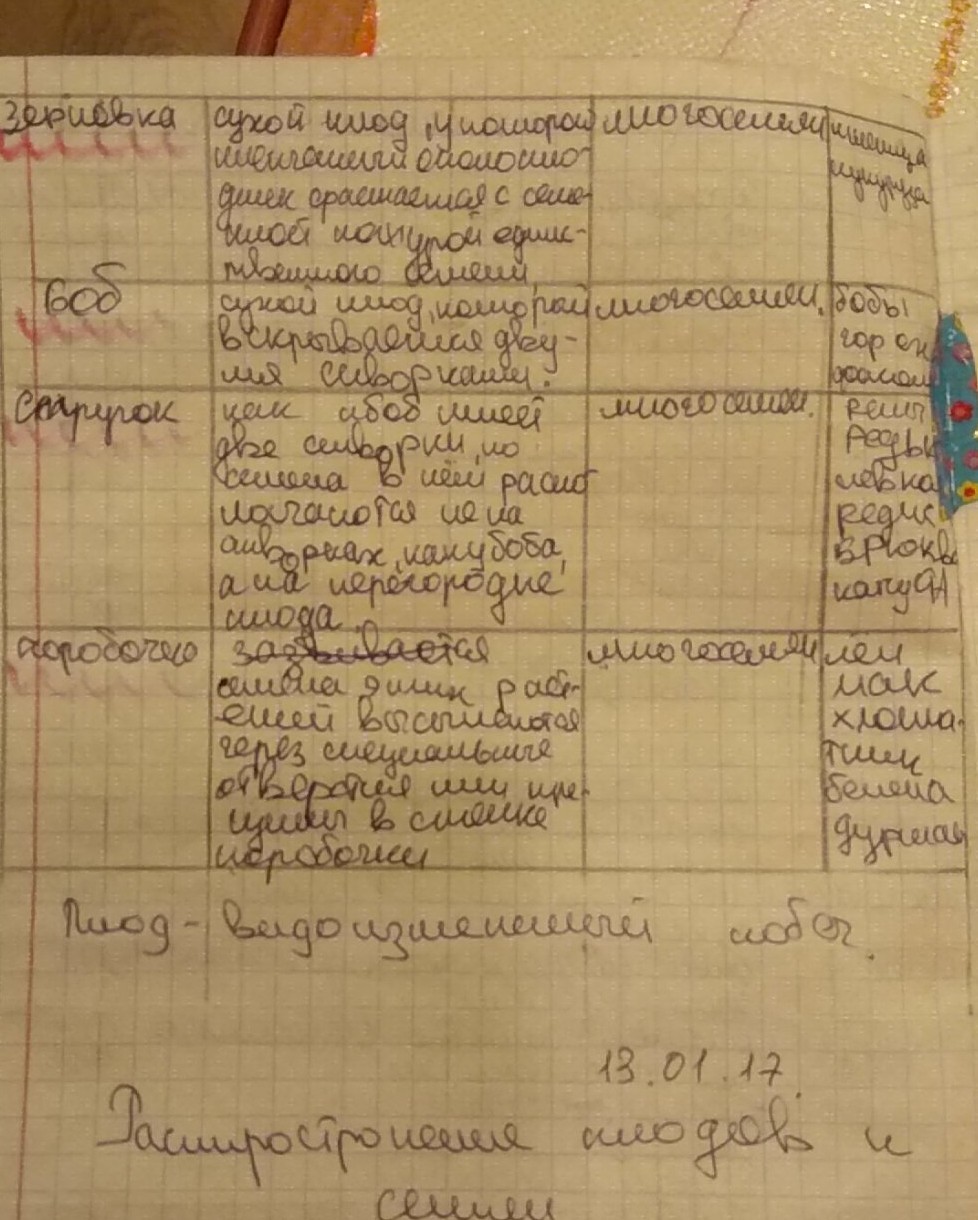 Зерновка
сухой плод, у которой
пленчатый околопло-
дник срастается с семе-
нной кожурой единс-
твенного семени
многосемян
пшеница
кукуруза
боб
сухой плод, который
вскрывается дву-
мя створками.
многосемян.
бобы
горох
Стручок
как и боб имеет
две створки, но
семена в нём распо
логаются не на
створках, как у боба,
а на перегородке
плода.
многосемян.
редис
брюква
коробочка
семена этих раст-
ений высыпаются
через специальные
отверстия или тре-
щины в стенке
коробочки
многосемян
лён
мак
хлопча-
тник
белена
дурман
Плод - видоизмененный побег.
13.01.17
Распростронения плодов и
семян